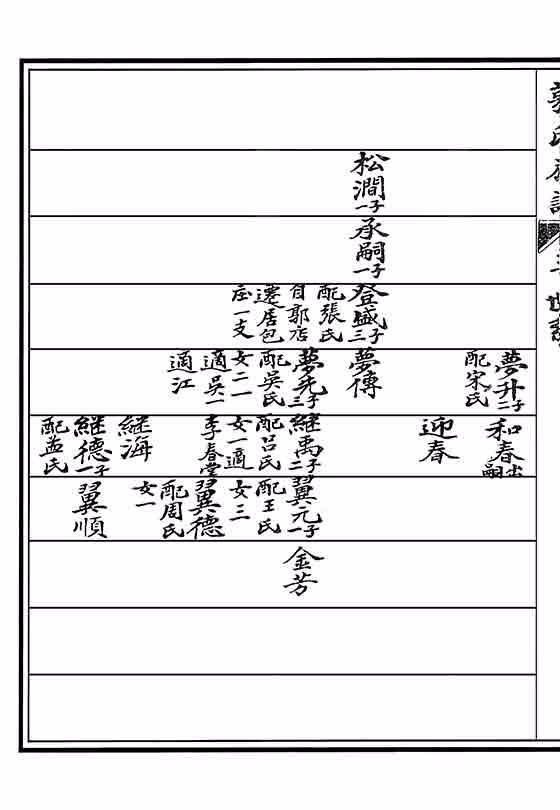 松澗一子
承嗣一子
登盛三子
配張氏
自郭店
遷居包
庄一支
夢升二子
配宋氏
夢傳
夢先三子
配吳氏
女二一
適吳一
適江
和春出嗣
迎春
継禹二子
配呂氏
女一適
李春堂
継海
継德一子
配孟氏
翼元一子
配王氏
女三
翼德
配周氏
女一
翼順
金芳